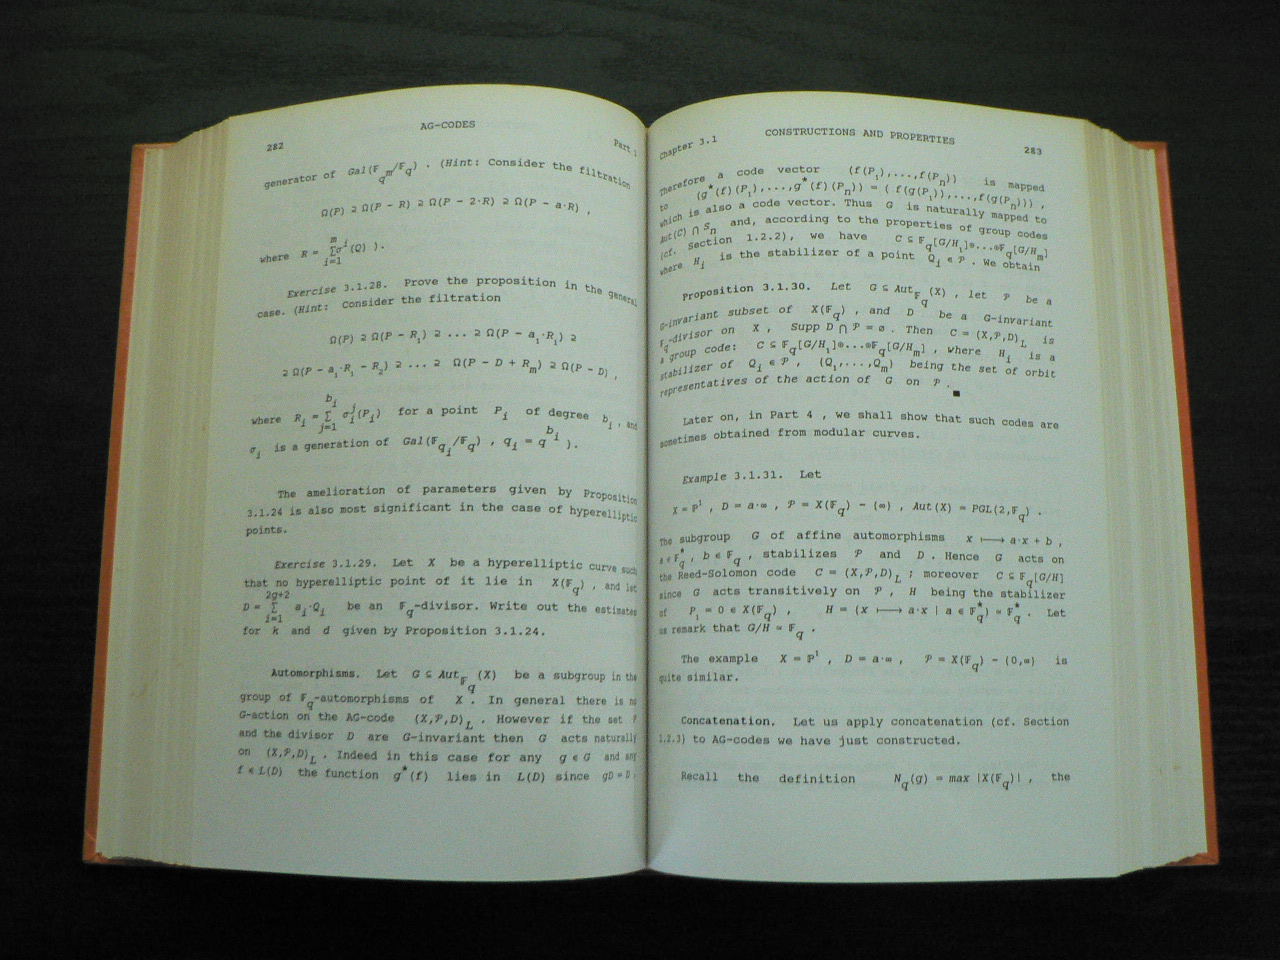 AG-CODES
282 Part
generator of Gal(𝔽_{q^m}/𝔽_q) . (Hint: Consider the filtration
Ω(P) ⊇ Ω(P − R) ⊇ Ω(P − 2·R) ⊇ Ω(P − a·R) ,
where R = Σ_{i=1}^{m} σ^i(Q) ).
Exercise 3.1.28. Prove the proposition in the general
case. (Hint: Consider the filtration
Ω(P) ⊇ Ω(P − R_1) ⊇ ... ⊇ Ω(P − a_1·R_1) ⊇
⊇ Ω(P − a_1·R_1 − R_2) ⊇ ... ⊇ Ω(P − D + R_m) ⊇ Ω(P − D) ,
where R_i = Σ_{j=1}^{b_i} σ_i^j(P_i) for a point P_i of degree b_i , and
σ_i is a generation of Gal(𝔽_{q_i}/𝔽_q) , q_i = q^{b_i} ).
The amelioration of parameters given by Proposition
3.1.24 is also most significant in the case of hyperelliptic
points.
Exercise 3.1.29. Let X be a hyperelliptic curve such
that no hyperelliptic point of it lie in X(𝔽_q) , and let
D = Σ_{i=1}^{2g+2} a_i·Q_i be an 𝔽_q-divisor. Write out the estimates
for k and d given by Proposition 3.1.24.
Automorphisms. Let G ⊆ Aut_{𝔽_q}(X) be a subgroup in the
group of 𝔽_q-automorphisms of X . In general there is no
G-action on the AG-code (X,𝒫,D)_L . However if the set 𝒫
and the divisor D are G-invariant then G acts naturally
on (X,𝒫,D)_L . Indeed in this case for any g ∈ G and any
f ∈ L(D) the function g*(f) lies in L(D) since gD = D .
Chapter 3.1 CONSTRUCTIONS AND PROPERTIES 283
Therefore a code vector (f(P_1),...,f(P_n)) is mapped
to (g*(f)(P_1),...,g*(f)(P_n)) = ( f(g(P_1)),...,f(g(P_n))) ,
which is also a code vector. Thus G is naturally mapped to
Aut(C) ∩ S_n and, according to the properties of group codes
(cf. Section 1.2.2), we have C ⊆ 𝔽_q[G/H_1]⊕...⊕𝔽_q[G/H_m]
where H_i is the stabilizer of a point Q_i ∈ 𝒫 . We obtain
Proposition 3.1.30. Let G ⊆ Aut_{𝔽_q}(X) , let 𝒫 be a
G-invariant subset of X(𝔽_q) , and D be a G-invariant
𝔽_q-divisor on X , Supp D ∩ 𝒫 = ∅ . Then C = (X,𝒫,D)_L is
a group code: C ⊆ 𝔽_q[G/H_1]⊕...⊕𝔽_q[G/H_m] , where H_i is a
stabilizer of Q_i ∈ 𝒫 , (Q_1,...,Q_m) being the set of orbit
representatives of the action of G on 𝒫 . ■
Later on, in Part 4 , we shall show that such codes are
sometimes obtained from modular curves.
Example 3.1.31. Let
X = ℙ^1 , D = a·∞ , 𝒫 = X(𝔽_q) − (∞) , Aut(X) = PGL(2,𝔽_q) .
The subgroup G of affine automorphisms x ⟼ a·x + b ,
a ∈ 𝔽_q^* , b ∈ 𝔽_q , stabilizes 𝒫 and D . Hence G acts on
the Reed-Solomon code C = (X,𝒫,D)_L ; moreover C ⊆ 𝔽_q[G/H]
since G acts transitively on 𝒫 , H being the stabilizer
of P_1 = 0 ∈ X(𝔽_q) , H = (x ⟼ a·x | a ∈ 𝔽_q^*) ≃ 𝔽_q^* . Let
us remark that G/H ≃ 𝔽_q .
The example X = ℙ^1 , D = a·∞ , 𝒫 = X(𝔽_q) − (0,∞) is
quite similar.
Concatenation. Let us apply concatenation (cf. Section
1.2.3) to AG-codes we have just constructed.
Recall the definition N_q(g) = max |X(𝔽_q)| , the